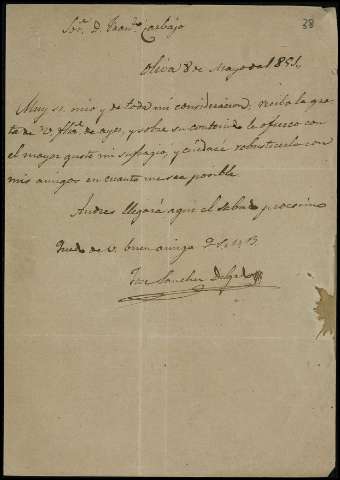 Sor. D. Fran.co Carbajo
38
Oliva 8 de Mayo de 1851,
Muy sr. mio y de toda mi consideracion, recibo la gra-
ta de V. fha. de ayer, y sobre su contenido le ofrezco con
el mayor gusto mi sufragio, y cuidaré robustecerlo con
mis amigos en cuanto me sea posible.
Andres llegará aqui el sabado procsimo
Quedo de V. buen amigo Q. S. M. B.
Sanchez Delgado